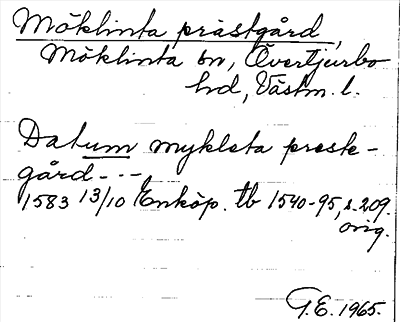 Möklinta prästgård,
Möklinta sn, Övertjurbo
hd, Västm. l.
Datum mykleta preste-
gård - - -
1583 13/10 Enköp. tb 1540-95, s. 209.
orig.
G.E. 1965.